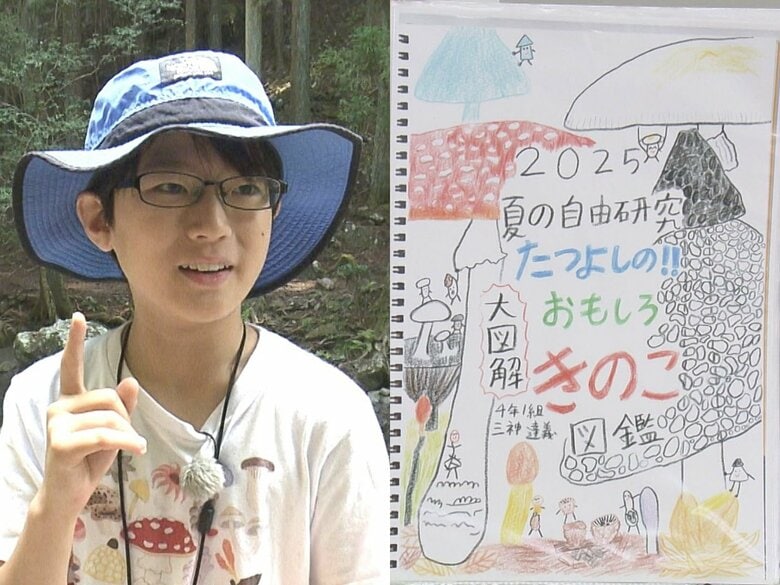 2025
夏の自由研究
たつよしの!!
おもしろ
大図解
きのこ
4年1組
三神 達義
図鑑